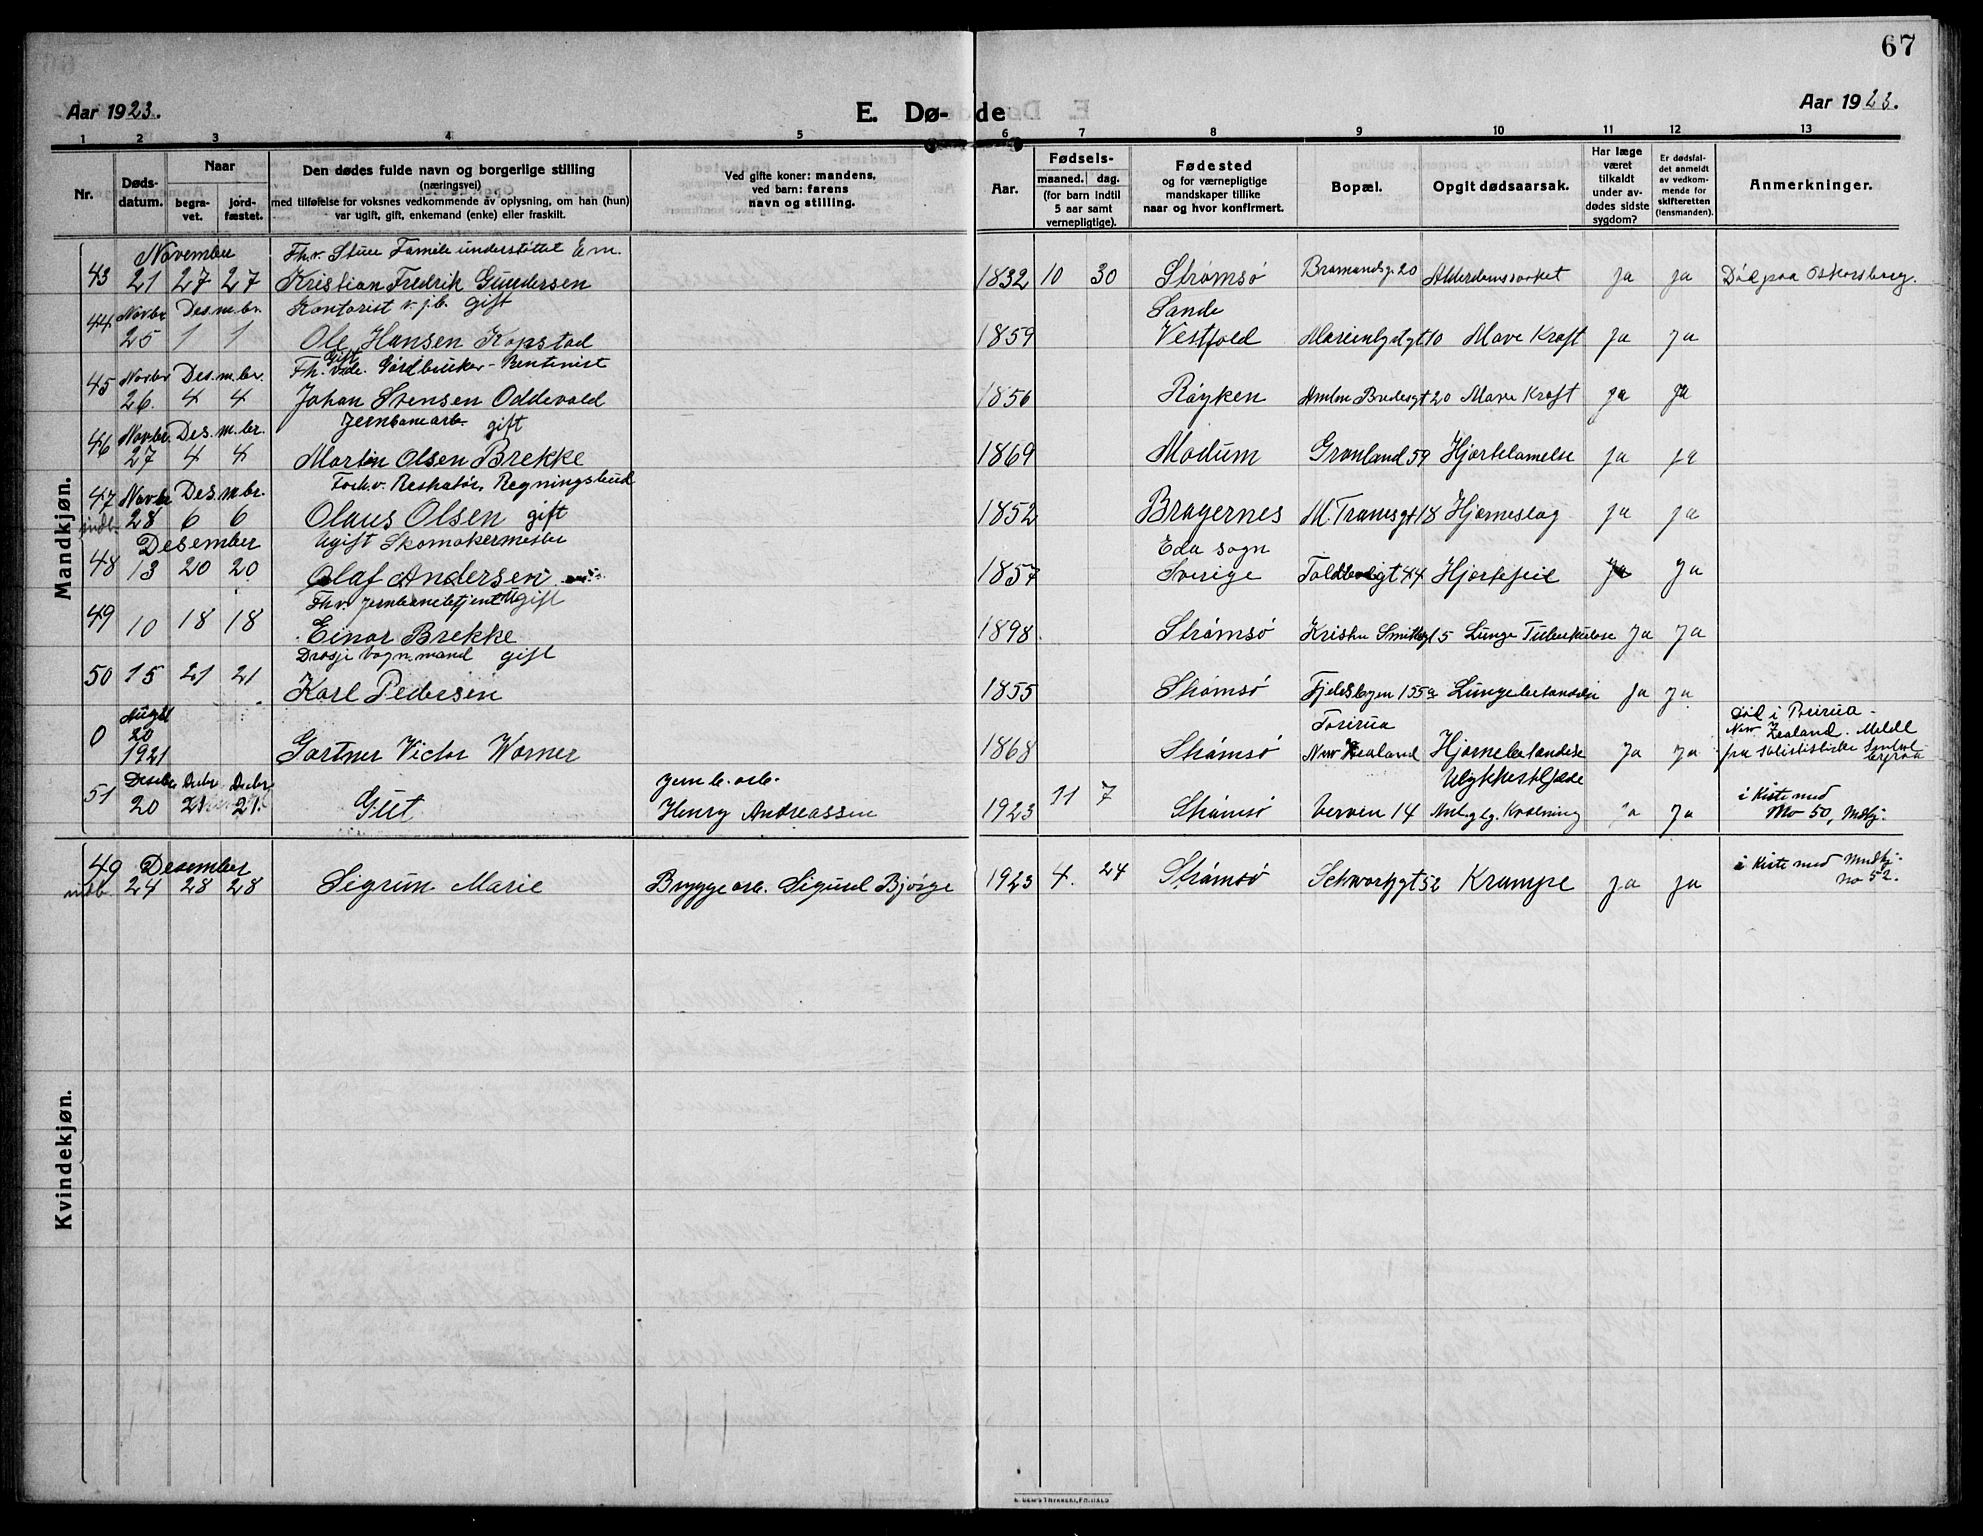 67
Aar 1923. E. Dø- de Aar 1923.
1 2 3 4 5 6 7 8 9 10 11 12 13
Nr. Døds-datum. Naar begra-vet. jord-fæstet. Den dødes fulde navn og borgerlige stilling (næringsvei) med tilføielse for voksnes vedkommende av oplysning, om han (hun) var ugift, gift, enkemand (enke) eller fraskilt. Ved gifte koner: mandens, ved barn: farens navn og stilling. Aar. Fødsels- maaned. dag. (for barn indtil 5 aar samt vernepligtige). Fødested og for værnepligtige mandskaper tillike naar og hvor konfirmert. Bopæl. Opgit dødsaarsak. Har læge været tilkaldt under av-dødes sidste sygdom? Er dødsfal-det anmeldt av vedkom-mende for skifteretten (lensmanden). Anmerkninger.
Mandkjøn.
November Fhv. Stuer Familie understøttet Em.
43 21 27 27 Kristian Fredrik Gundersen 1832 10 30 Strømsø 20 Alderdomssvækket ja ja Død paa Oskarsborg.
Novbr Desmbr. Kontorist gift Sande
44 25 1 1 Ole Hansen Kopstad 1859 Vestfold 10 Mave Kræft ja ja
Novbr Desmbr. Fh. Gift Gårdbruker - Rentenist
45 26. 4 4 Johan Stensen Oddevald 1856 Røyken 20 Mave Kræft ja ja
Novbr. Desmbr. Jernbanearb. gift
46 27 4 4 Martin Olsen Brekke 1869 Modum Grønland 59 Hjertelamelse ja ja
Novbr Desmbr. Forhv. Regningsbud
47 indb. 28 6 6 Olaus Olsen gift 1852 Bragernes M. Tranesgt 18 Hjerneslag ja ja
Desember Ugift Skomakermester Eda sogn
48 13 20 20 Olaf Andersen 1857 Sverige 44 Hjertefeil ja ja
Fhv. Jernbanebetjent Ugift
49 10 18 18 Einar Brekke 1898 Strømsø 5 Lunge Tuberkulose ja ja
Drosje Vognmand gift
50 15 21 21 Karl Pedersen 1855 Strømsø 155a Lungebetændelse ja ja
August Porirua død i Porirua -
0 20 1921 Gartner Victor Worner 1868 Strømsø New Zealand Hjernebetændelse ja ja New Zealand. Meldt fra
Desbr Desbr Desbr Jernb. arb. Ulykkestilfælde i kiste med
51 20 21. 21. Gut Henry Andreassen 1923 11 7 Strømsø Verven 14 Kvælning ja ja No 50, Mdkj.
Kvindekjøn.
Desember i kiste med Mndkj.
49 indb. 24 28 28 Sigrun Marie Bryggearb. Sigurd Bjørge 1923 4. 24 Strømsø Schwartzgt 52 Krampe ja ja No 52.